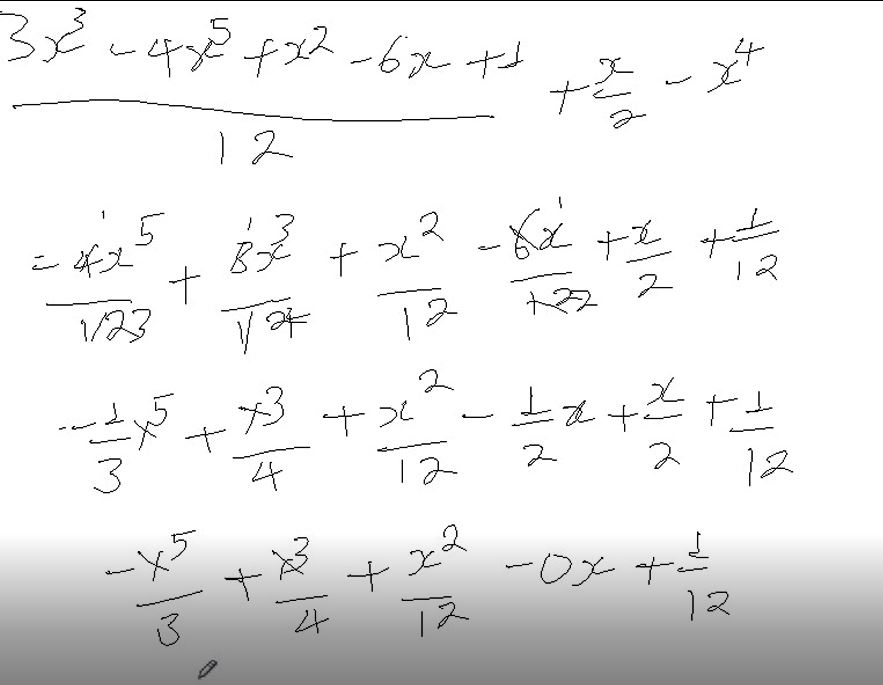 (3x³ - 4x⁵ + x² - 6x + 1)/12 + x/2 - x⁴
= -4x⁵/12 3 + 3x³/12 4 + x²/12 - 6x/12 2 + x/2 + 1/12
-1/3 x⁵ + x³/4 + x²/12 - 1/2 x + x/2 + 1/12
-x⁵/3 + x³/4 + x²/12 - 0x + 1/12